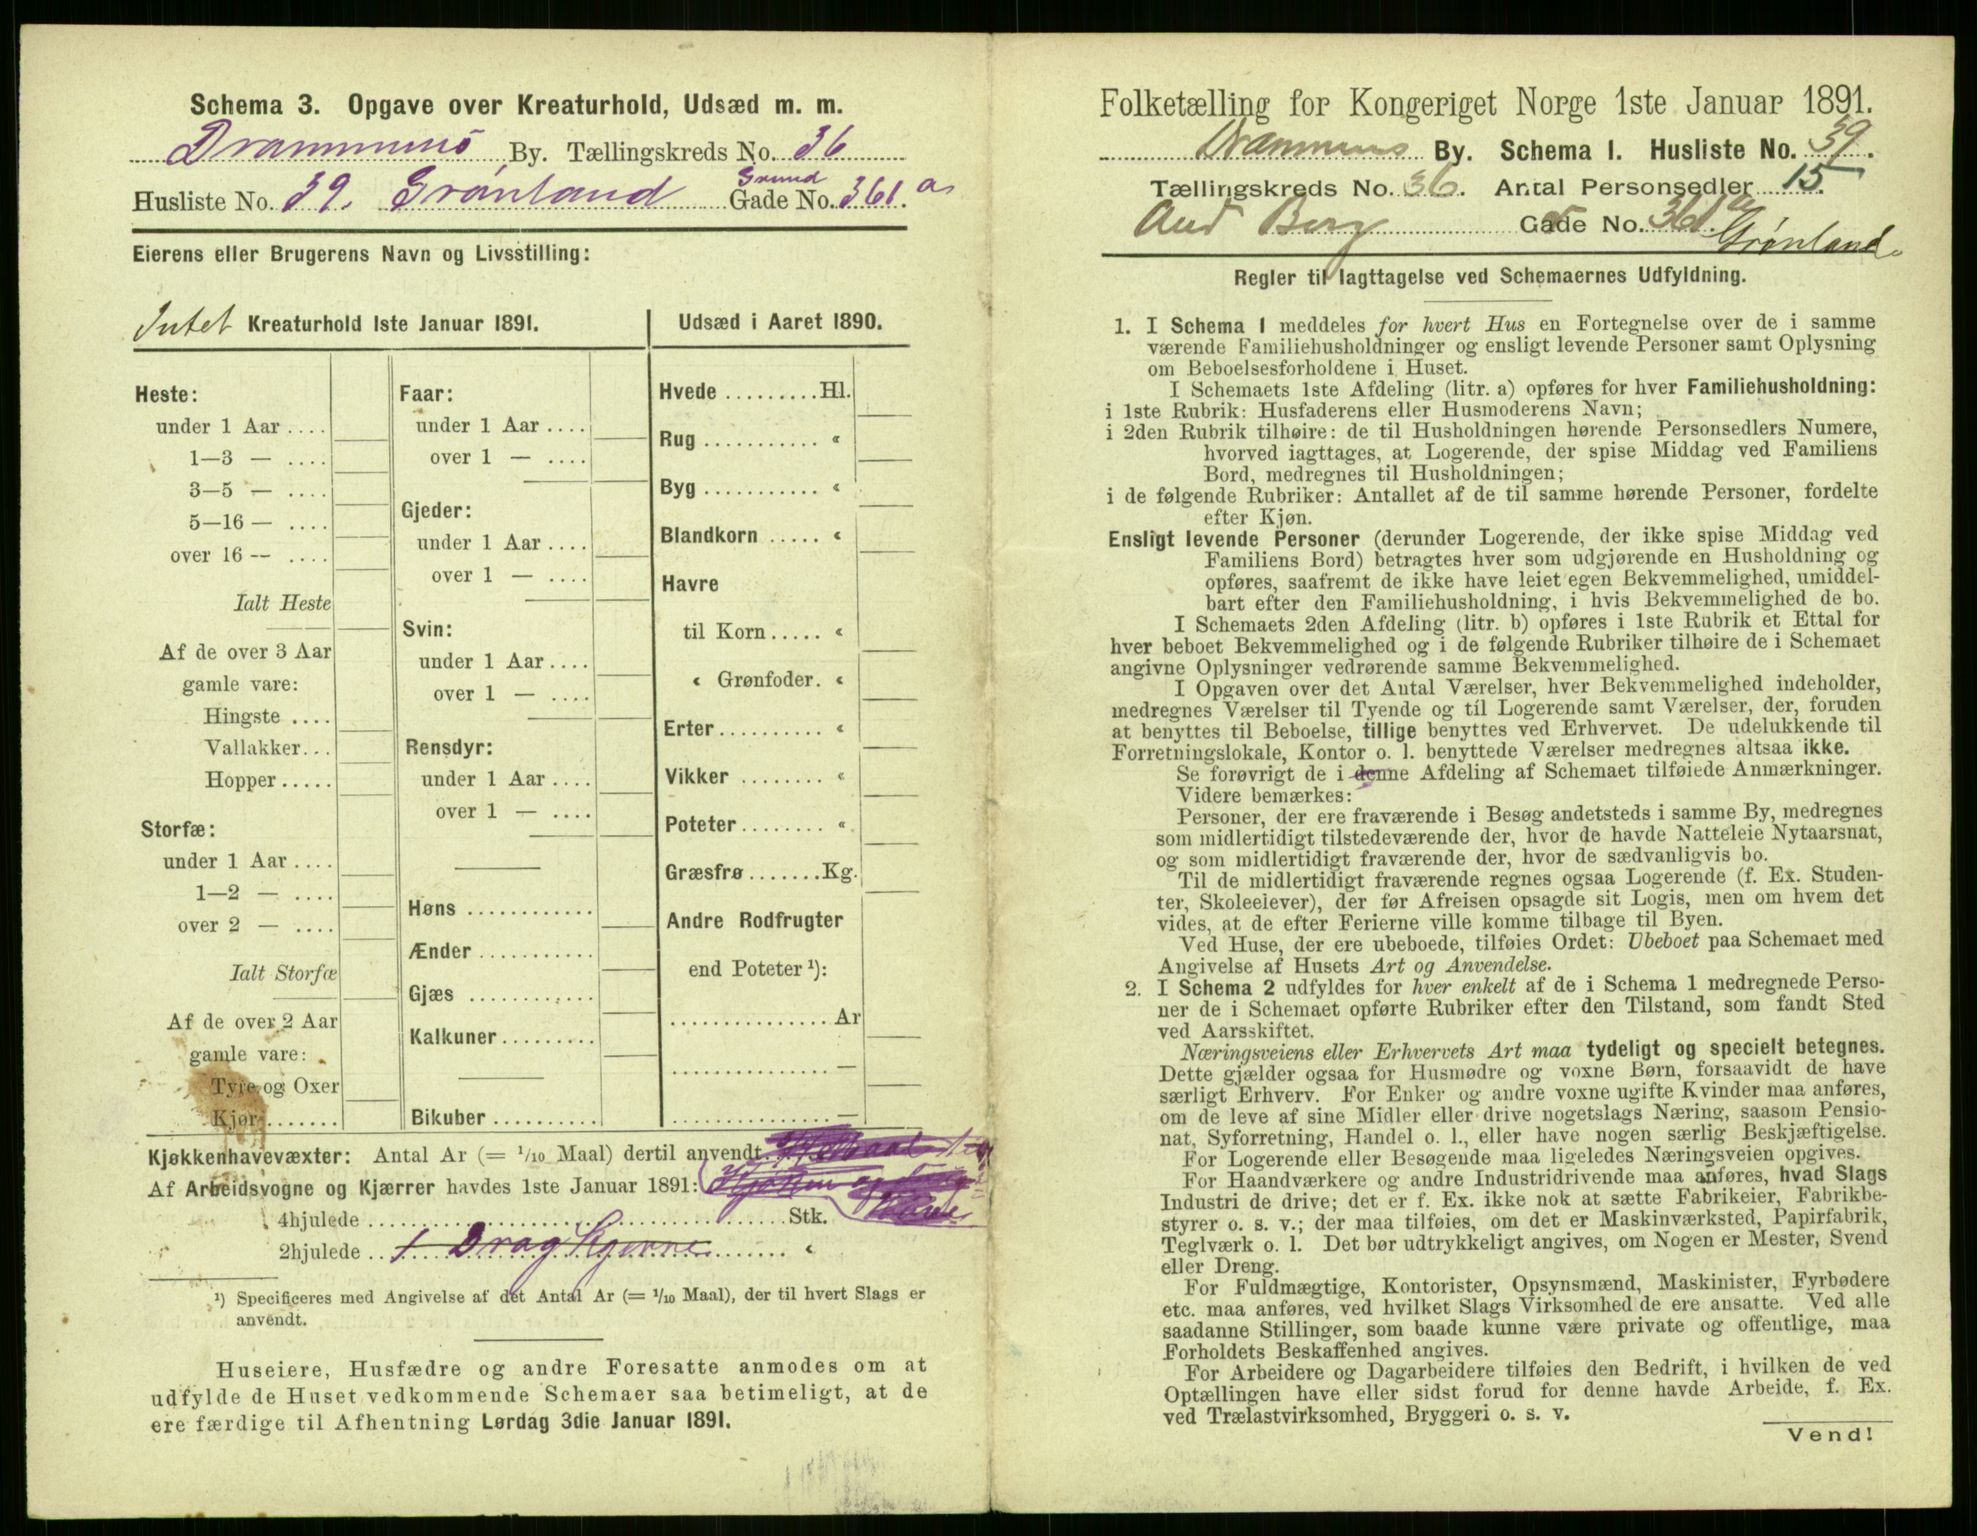 Schema 3. Opgave over Kreaturhold, Udsæd m. m.
Drammens By. Tællingskreds No. 36
Husliste No. 39. Grønland Grund Gade No. 361 a
Eierens eller Brugerens Navn og Livsstilling:
Intet Kreaturhold 1ste Januar 1891.
Heste:
under 1 Aar ....
1—3 — ....
3—5 — ....
5—16 — ....
over 16 -- ....
Ialt Heste
Af de over 3 Aar
gamle vare:
Hingste ....
Vallakker...
Hopper.....
Storfæ:
under 1 Aar ....
1—2 — ....
over 2 — ....
Ialt Storfæ
Af de over 2 Aar
gamle vare:
Tyre og Oxer
Kjør.......
Faar:
under 1 Aar ....
over 1 — ....
Gjeder:
under 1 Aar ....
over 1 — ....
Svin:
under 1 Aar ....
over 1 — ....
Rensdyr:
under 1 Aar ....
over 1 — ....
Høns ............
Ænder ...........
Gjæs ............
Kalkuner.........
Bikuber ..........
Udsæd i Aaret 1890.
Hvede .........Hl.
Rug ........... «
Byg ........... «
Blandkorn ..... «
Havre
til Korn..... «
« Grønfoder. «
Erter.......... «
Vikker ........ «
Poteter........ «
Græsfrø.......Kg.
Andre Rodfrugter
end Poteter ¹):
............... Ar
............... —
............... —
Kjøkkenhavevæxter: Antal Ar (= 1/10 Maal) dertil anvendt
Af Arbeidsvogne og Kjærrer havdes 1ste Januar 1891:
4hjulede ........................ Stk.
2hjulede ... 1 Drag Kjerre ...... «
¹) Specificeres med Angivelse af det Antal Ar (= 1/10 Maal), der til hvert Slags er
anvendt.
Huseiere, Husfædre og andre Foresatte anmodes om at
udfylde de Huset vedkommende Schemaer saa betimeligt, at de
ere færdige til Afhentning Lørdag 3die Januar 1891.
Folketælling for Kongeriget Norge 1ste Januar 1891.
Drammens By. Schema I. Husliste No. 39.
Tællingskreds No. 36. Antal Personsedler 15.
And Berg Gade No. 361 a Grønland.
Regler til Iagttagelse ved Schemaernes Udfyldning.
1. I Schema 1 meddeles for hvert Hus en Fortegnelse over de i samme
værende Familiehusholdninger og ensligt levende Personer samt Oplysning
om Beboelsesforholdene i Huset.
I Schemaets 1ste Afdeling (litr. a) opføres for hver Familiehusholdning:
i 1ste Rubrik: Husfaderens eller Husmoderens Navn;
i 2den Rubrik tilhøire: de til Husholdningen hørende Personsedlers Numere,
hvorved iagttages, at Logerende, der spise Middag ved Familiens
Bord, medregnes til Husholdningen;
i de følgende Rubriker: Antallet af de til samme hørende Personer, fordelte
efter Kjøn.
Ensligt levende Personer (derunder Logerende, der ikke spise Middag ved
Familiens Bord) betragtes hver som udgjørende en Husholdning og
opføres, saafremt de ikke have leiet egen Bekvemmelighed, umiddel-
bart efter den Familiehusholdning, i hvis Bekvemmelighed de bo.
I Schemaets 2den Afdeling (litr. b) opføres i 1ste Rubrik et Ettal for
hver beboet Bekvemmelighed og i de følgende Rubriker tilhøire de i Schemaet
angivne Oplysninger vedrørende samme Bekvemmelighed.
I Opgaven over det Antal Værelser, hver Bekvemmelighed indeholder,
medregnes Værelser til Tyende og til Logerende samt Værelser, der, foruden
at benyttes til Beboelse, tillige benyttes ved Erhvervet. De udelukkende til
Forretningslokale, Kontor o. l. benyttede Værelser medregnes altsaa ikke.
Se forøvrigt de i denne Afdeling af Schemaet tilføiede Anmærkninger.
Videre bemærkes:
Personer, der ere fraværende i Besøg andetsteds i samme By, medregnes
som midlertidigt tilstedeværende der, hvor de havde Natteleie Nytaarsnat,
og som midlertidigt fraværende der, hvor de sædvanligvis bo.
Til de midlertidigt fraværende regnes ogsaa Logerende (f. Ex. Studen-
ter, Skoleeiever), der før Afreisen opsagde sit Logis, men om hvem det
vides, at de efter Ferierne ville komme tilbage til Byen.
Ved Huse, der ere ubeboede, tilføies Ordet: Ubeboet paa Schemaet med
Angivelse af Husets Art og Anvendelse.
2. I Schema 2 udfyldes for hver enkelt af de i Schema 1 medregnede Perso-
ner de i Schemaet opførte Rubriker efter den Tilstand, som fandt Sted
ved Aarsskiftet.
Næringsveiens eller Erhvervets Art maa tydeligt og specielt betegnes.
Dette gjælder ogsaa for Husmødre og voxne Børn, forsaavidt de have
særligt Erhverv. For Enker og andre voxne ugifte Kvinder maa anføres,
om de leve af sine Midler eller drive nogetslags Næring, saasom Pensio-
nat, Syforretning, Handel o. l., eller have nogen særlig Beskjæftigelse.
For Logerende eller Besøgende maa ligeledes Næringsveien opgives.
For Haandværkere og andre Industridrivende maa anføres, hvad Slags
Industri de drive; det er f. Ex. ikke nok at sætte Fabrikeier, Fabrikbe-
styrer o. s. v.; der maa tilføies, om det er Maskinværksted, Papirfabrik,
Teglværk o. l. Det bør udtrykkeligt angives, om Nogen er Mester, Svend
eller Dreng.
For Fuldmægtige, Kontorister, Opsynsmænd, Maskinister, Fyrbødere
etc. maa anføres, ved hvilket Slags Virksomhed de ere ansatte. Ved alle
saadanne Stillinger, som baade kunne være private og offentlige, maa
Forholdets Beskaffenhed angives.
For Arbeidere og Dagarbeidere tilføies den Bedrift, i hvilken de ved
Optællingen have eller sidst forud for denne havde Arbeide, f. Ex.
ved Trælastvirksomhed, Bryggeri o. s. v.
Vend!